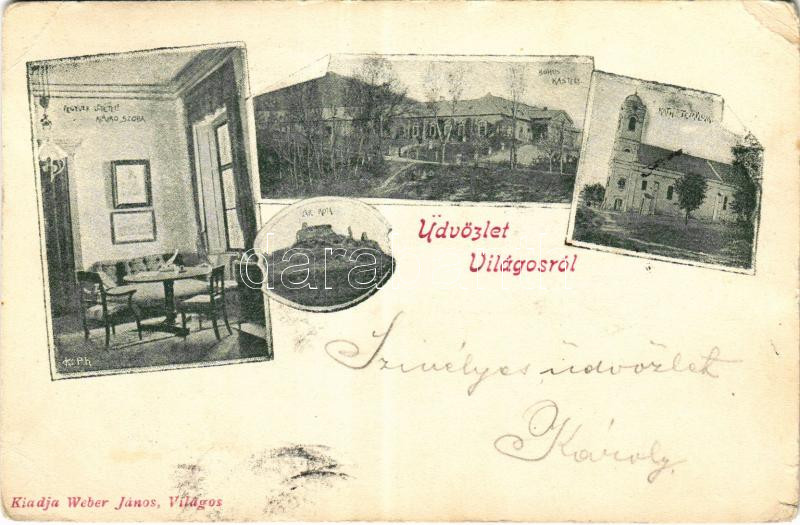 FEGYVER LETÉTELI
ALÁIRÓ SZOBA
BOHUS
KASTÉLY
KATH. TEMPLOM
VÁR ROM
Üdvözlet
Világosról
dara
Szivélyes üdvözlet
Károly
Kiadja Weber János, Világos